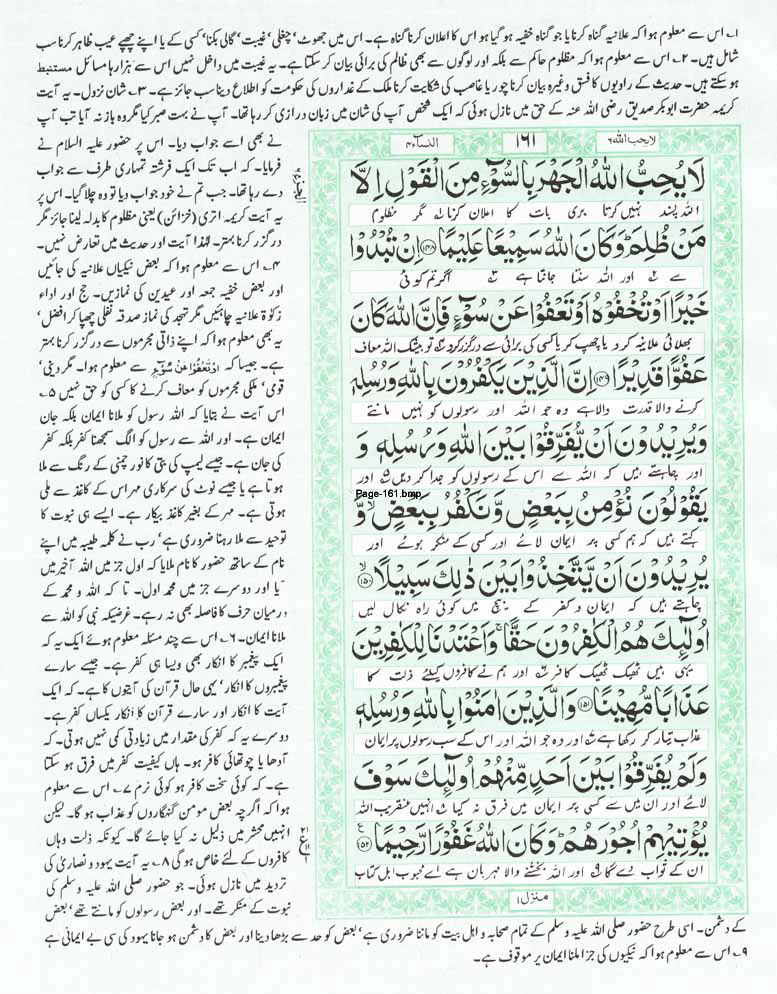 ۱۔ اس سے معلوم ہوا کہ علانیہ گناہ کرنا یا جو گناہ خفیہ ہو گیا ہو اس کا اعلان کرنا گناہ ہے۔ اس میں جھوٹ‘ چغلی‘ غیبت‘ گالی بکنا‘ کسی کے یا اپنے چھپے عیب ظاہر کرنا سب
شامل ہیں۔ ۲۔ اس سے معلوم ہوا کہ مظلوم حاکم سے بلکہ اور لوگوں سے بھی ظالم کی برائی بیان کر سکتا ہے۔ یہ غیبت میں داخل نہیں اس سے ہزارہا مسائل مستنبط
ہو سکتے ہیں۔ حدیث کے راویوں کا فسق وغیرہ بیان کرنا چور یا غاصب کی شکایت کرنا ملک کے غداروں کی حکومت کو اطلاع دینا سب جائز ہے۔ ۳۔ شان نزول۔ یہ آیت
کریمہ حضرت ابوبکر صدیق رضی اللہ عنہ کے حق میں نازل ہوئی کہ ایک شخص آپ کی شان میں زبان درازی کر رہا تھا۔ آپ نے بہت صبر کیا مگر وہ باز نہ آیا تب آپ
نے بھی اسے جواب دیا۔ اس پر حضور علیہ السلام نے
فرمایا۔ کہ اب تک ایک فرشتہ تمہاری طرف سے جواب
دے رہا تھا۔ جب تم نے خود جواب دیا تو وہ چلا گیا۔ اس پر
یہ آیت کریمہ اتری (خزائن) یعنی مظلوم کا بدلہ لینا جائز مگر
درگزر کرنا بہتر۔ لہٰذا آیت اور حدیث میں تعارض نہیں۔
۴۔ اس سے معلوم ہوا کہ بعض نیکیاں علانیہ کی جائیں
اور بعض خفیہ جمعہ اور عیدین کی نمازیں۔ حج اور اداء
زکوٰۃ علانیہ چاہئیں مگر تہجد کی نماز صدقہ نفلی چھپا کر افضل‘
یہ بھی معلوم ہوا کہ اپنے ذاتی مجرموں سے درگزر کرنا بہتر
ہے۔ جیسا کہ اَوْتَعْفُوْا عَنْ سُوْٓءٍ سے معلوم ہوا۔ مگر دینی‘
قومی‘ ملکی مجرموں کو معاف کرنے کا کسی کو حق نہیں ۵۔
اس آیت نے بتایا کہ اللہ رسول کو ملانا ایمان بلکہ جان
ایمان ہے۔ اور اللہ سے رسول کو الگ سمجھنا کفر بلکہ کفر
کی جان ہے۔ جیسے لیمپ کی بتی کا نور چمنی کے رنگ سے ملا
ہوتا ہے یا جیسے نوٹ کی سرکاری مہر اس کے کاغذ سے ملی
ہوتی ہے۔ مہر کے بغیر کاغذ بیکار ہے۔ ایسے ہی نبوت کا
توحید سے ملا رہنا ضروری ہے‘ رب نے کلمہ طیبہ میں اپنے
نام کے ساتھ حضور کا نام ملایا کہ اول جز میں اللہ آخیر میں
یا اور دوسرے جز میں محمد اول۔ تا کہ اللہ و محمد کے
درمیان حرف کا فاصلہ بھی نہ رہے۔ غرضیکہ نبی کو اللہ سے
ملانا ایمان۔ ۶۔ اس سے چند مسئلہ معلوم ہوئے ایک یہ کہ
ایک پیغمبر کا انکار بھی ویسا ہی کفر ہے۔ جیسے سارے
پیغمبروں کا انکار‘ یہی حال قرآن کی آیتوں کا ہے۔ کہ ایک
آیت کا انکار اور سارے قرآن کا انکار یکساں کفر ہے۔
دوسرے یہ کہ کفر کی مقدار میں زیادتی کمی نہیں ہوتی۔ کہ
آدھا یا چوتھائی کافر ہو۔ ہاں کیفیت کفر میں فرق ہو سکتا
ہے۔ کہ کوئی سخت کافر ہو کوئی نرم ۷۔ اس سے معلوم
ہوا کہ اگرچہ بعض مومن گنہگاروں کو عذاب ہو گا۔ لیکن
انہیں محشر میں ذلیل نہ کیا جائے گا۔ کیونکہ ذلت وہاں
کافروں کے لئے خاص ہو گی ۸۔ یہ آیت یہود و نصاریٰ کی
تردید میں نازل ہوئی۔ جو حضور صلی اللہ علیہ وسلم کی
نبوت کے منکر تھے۔ اور بعض رسولوں کو مانتے تھے‘ بعض
لا یحب اللہ ۶
۱۶۱
النساء ۴
لَا يُحِبُّ اللّٰهُ الْجَهْرَ بِالسُّوْٓءِ مِنَ الْقَوْلِ اِلَّا
اللہ پسند نہیں کرتا بری بات کا اعلان کرنا مگر مظلوم
مَنْ ظُلِمَ ؕ وَكَانَ اللّٰهُ سَمِيْعًا عَلِيْمًا ﴿۱۴۸﴾ اِنْ تُبْدُوْا
سے اور اللہ سنتا جانتا ہے اگر تم کوئی
خَيْرًا اَوْ تُخْفُوْهُ اَوْ تَعْفُوْا عَنْ سُوْٓءٍ فَاِنَّ اللّٰهَ كَانَ
بھلائی علانیہ کرو یا چھپ کر یا کسی کی برائی سے درگزر کرو تو بیشک اللہ معاف
عَفُوًّا قَدِيْرًا ﴿۱۴۹﴾ اِنَّ الَّذِيْنَ يَكْفُرُوْنَ بِاللّٰهِ وَرُسُلِهٖ
کرنے والا قدرت والا ہے وہ جو اللہ اور رسولوں کو نہیں مانتے
وَيُرِيْدُوْنَ اَنْ يُّفَرِّقُوْا بَيْنَ اللّٰهِ وَرُسُلِهٖ وَ
اور چاہتے ہیں کہ اللہ سے اس کے رسولوں کو جدا کر دیں اور
Page-161.bmp
يَقُوْلُوْنَ نُؤْمِنُ بِبَعْضٍ وَّنَكْفُرُ بِبَعْضٍ ۙ وَّ
کہتے ہیں کہ ہم کسی پر ایمان لائے اور کسی کے منکر ہوئے اور
يُرِيْدُوْنَ اَنْ يَّتَّخِذُوْا بَيْنَ ذٰلِكَ سَبِيْلًا ﴿۱۵۰﴾
چاہتے ہیں کہ ایمان و کفر کے بیچ میں کوئی راہ نکال لیں
اُولٰٓئِكَ هُمُ الْكٰفِرُوْنَ حَقًّا ۚ وَاَعْتَدْنَا لِلْكٰفِرِيْنَ
یہی ہیں ٹھیک ٹھیک کافر اور ہم نے کافروں کیلئے ذلت کا
عَذَابًا مُّهِيْنًا ﴿۱۵۱﴾ وَالَّذِيْنَ اٰمَنُوْا بِاللّٰهِ وَرُسُلِهٖ
عذاب تیار کر رکھا ہے اور وہ جو اللہ اور اس کے سب رسولوں پر ایمان
وَلَمْ يُفَرِّقُوْا بَيْنَ اَحَدٍ مِّنْهُمْ اُولٰٓئِكَ سَوْفَ
لائے اور ان میں سے کسی پر ایمان میں فرق نہ کیا انہیں عنقریب اللہ
يُؤْتِيْهِمْ اُجُوْرَهُمْ ؕ وَكَانَ اللّٰهُ غَفُوْرًا رَّحِيْمًا ﴿۱۵۲﴾
ان کے ثواب دے گا اور اللہ بخشنے والا مہربان ہے اے محبوب اہل کتاب
منزل ۱
کے دشمن۔ اسی طرح حضور صلی اللہ علیہ وسلم کے تمام صحابہ و اہل بیت کو ماننا ضروری ہے‘ بعض کو حد سے بڑھا دینا اور بعض کا دشمن ہو جانا یہود کی سی بے ایمانی ہے
۹۔ اس سے معلوم ہوا کہ نیکیوں کی جزا ملنا ایمان پر موقوف ہے۔